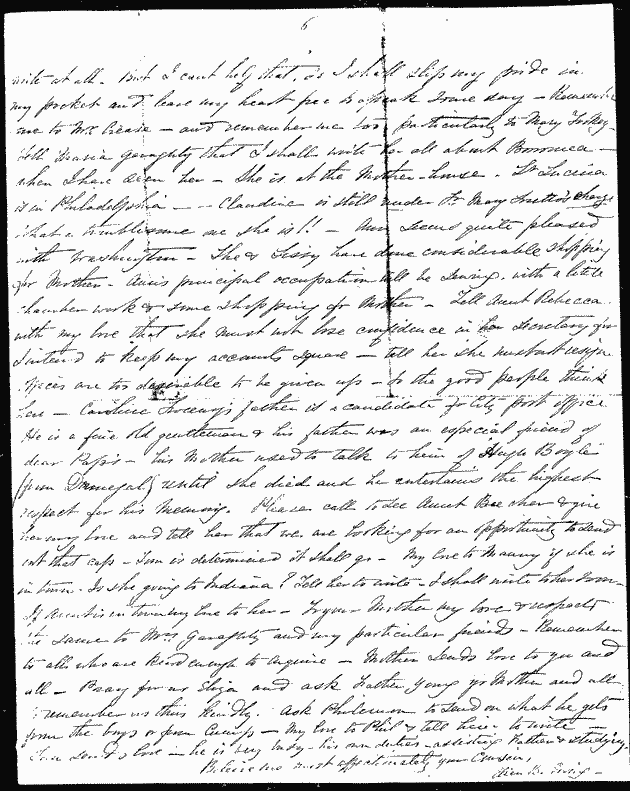 6
write at all. But I cant help that, so I shall slip my pride in
my pocket and leave my heart free to speak some day - Remember
me to Mr. - and remember me too, particularly to Mary
tell that I shall write her all about
when I have seen her - She is at the Mother-house. Sr. Lucina
is in Philadelphia - - Claudine is still under Sr. Mary charge
What a troublesome as she is!! - Ann seems quite pleased
with Washington - She & Sissy have done considerable shopping
for Mother - Ann's principal occupation will be sewing, with a little
chamber work & some shopping for Mother - Tell Aunt Rebecca
with my love that she must not lose confidence in her Secretary for
I intend to keep my accounts square - tell her she must not resign
offices are too desirable to be given up - so the good people think
here - Caroline father is a candidate for City post office
He is a fine old gentleman & his father was an especial friend of
dear Papa's - his Mother used to talk to him of Hugh Boyle
(from Donnegal) until she died and he entertains the highest
respect for his memory. Please call to see Aunt & give
her my love and tell her that we are looking for an opportunity to send
out that cap - Tom is determined it shall go - My love to if she is
in town. Is she going to Indiana? Tell her to write - I shall write to her soon -
If Aunt is in town my love to her - to your Mother my love & respects
the same to Mrs. Garaghty and my particular friends - Remember
to all who are kind enough to enquire - Mother sends love to you and
all - Pray for us Eliza and ask Father Young yr Mother and all
to remember us thus kindly. Ask Philemon to send on what he gets
from the boys or from - My love to Phil & tell him to write -
Tom sends love - he is very busy - his own duties - assisting Father & studying.
Believe me most affectionately your Cousin,
Ellen B. Ewing -